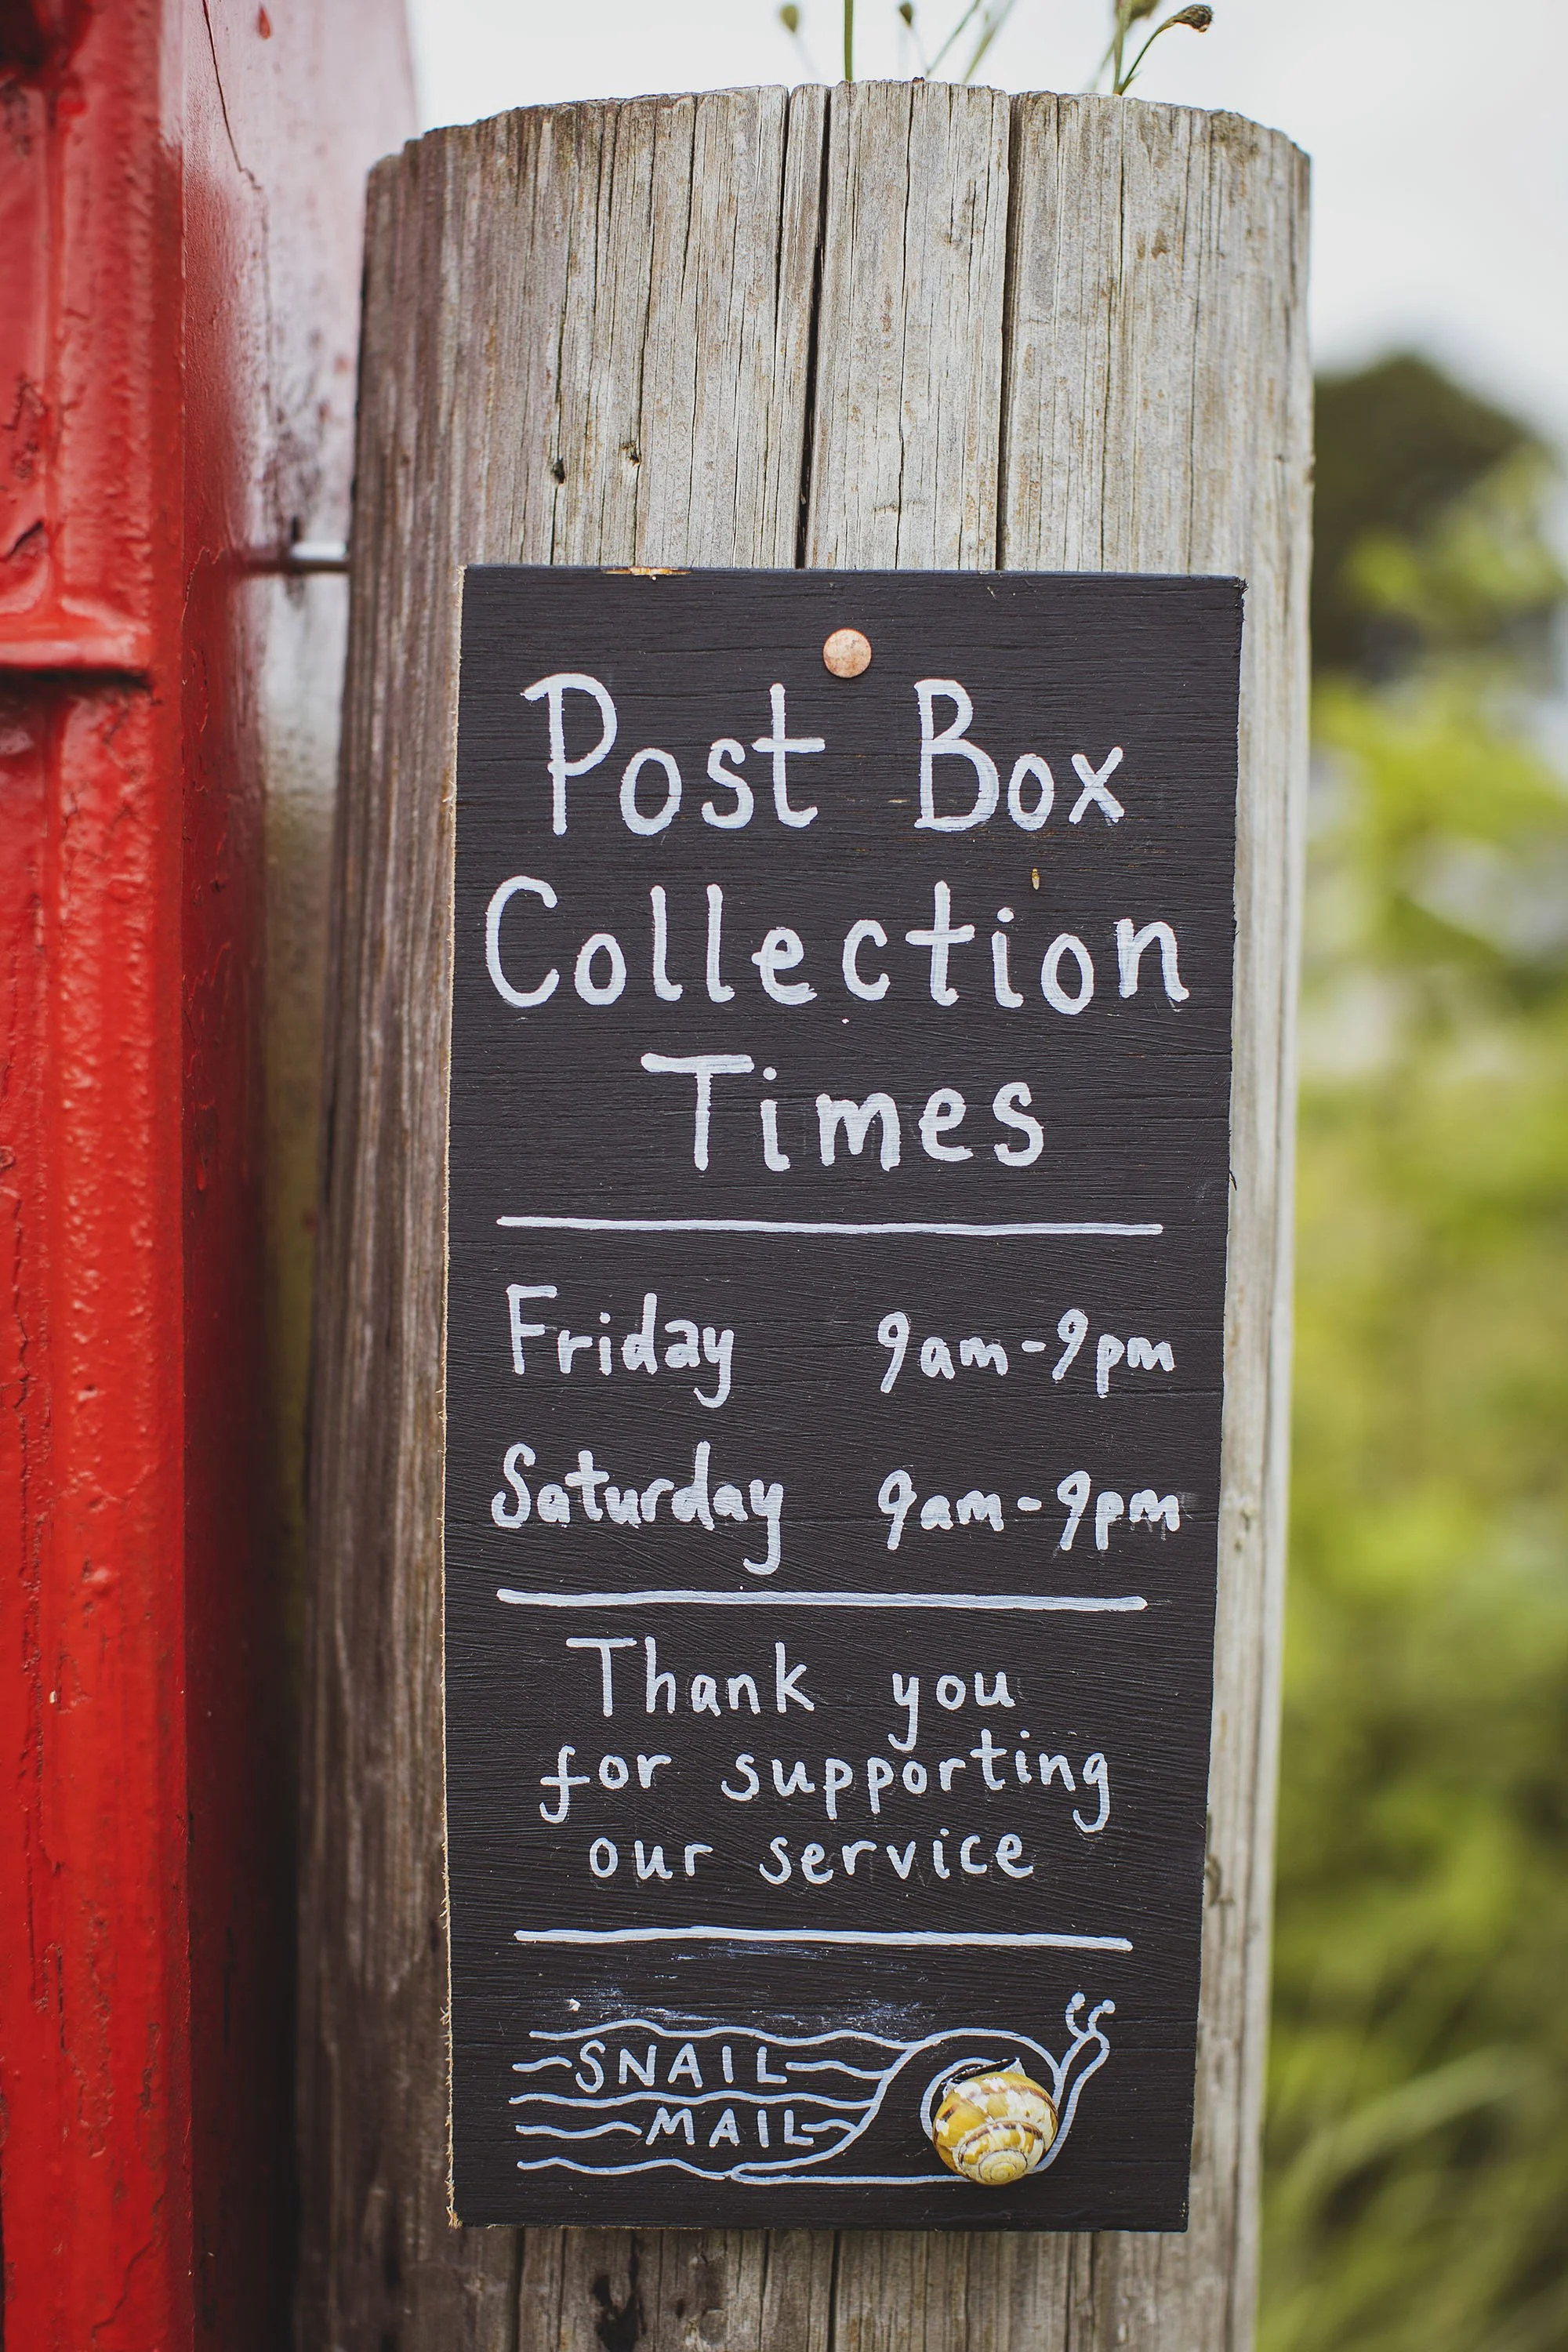 Post Box
Collection
Times
Friday 9am-9pm
Saturday 9am-9pm
Thank you
for supporting
our service
SNAIL
MAIL